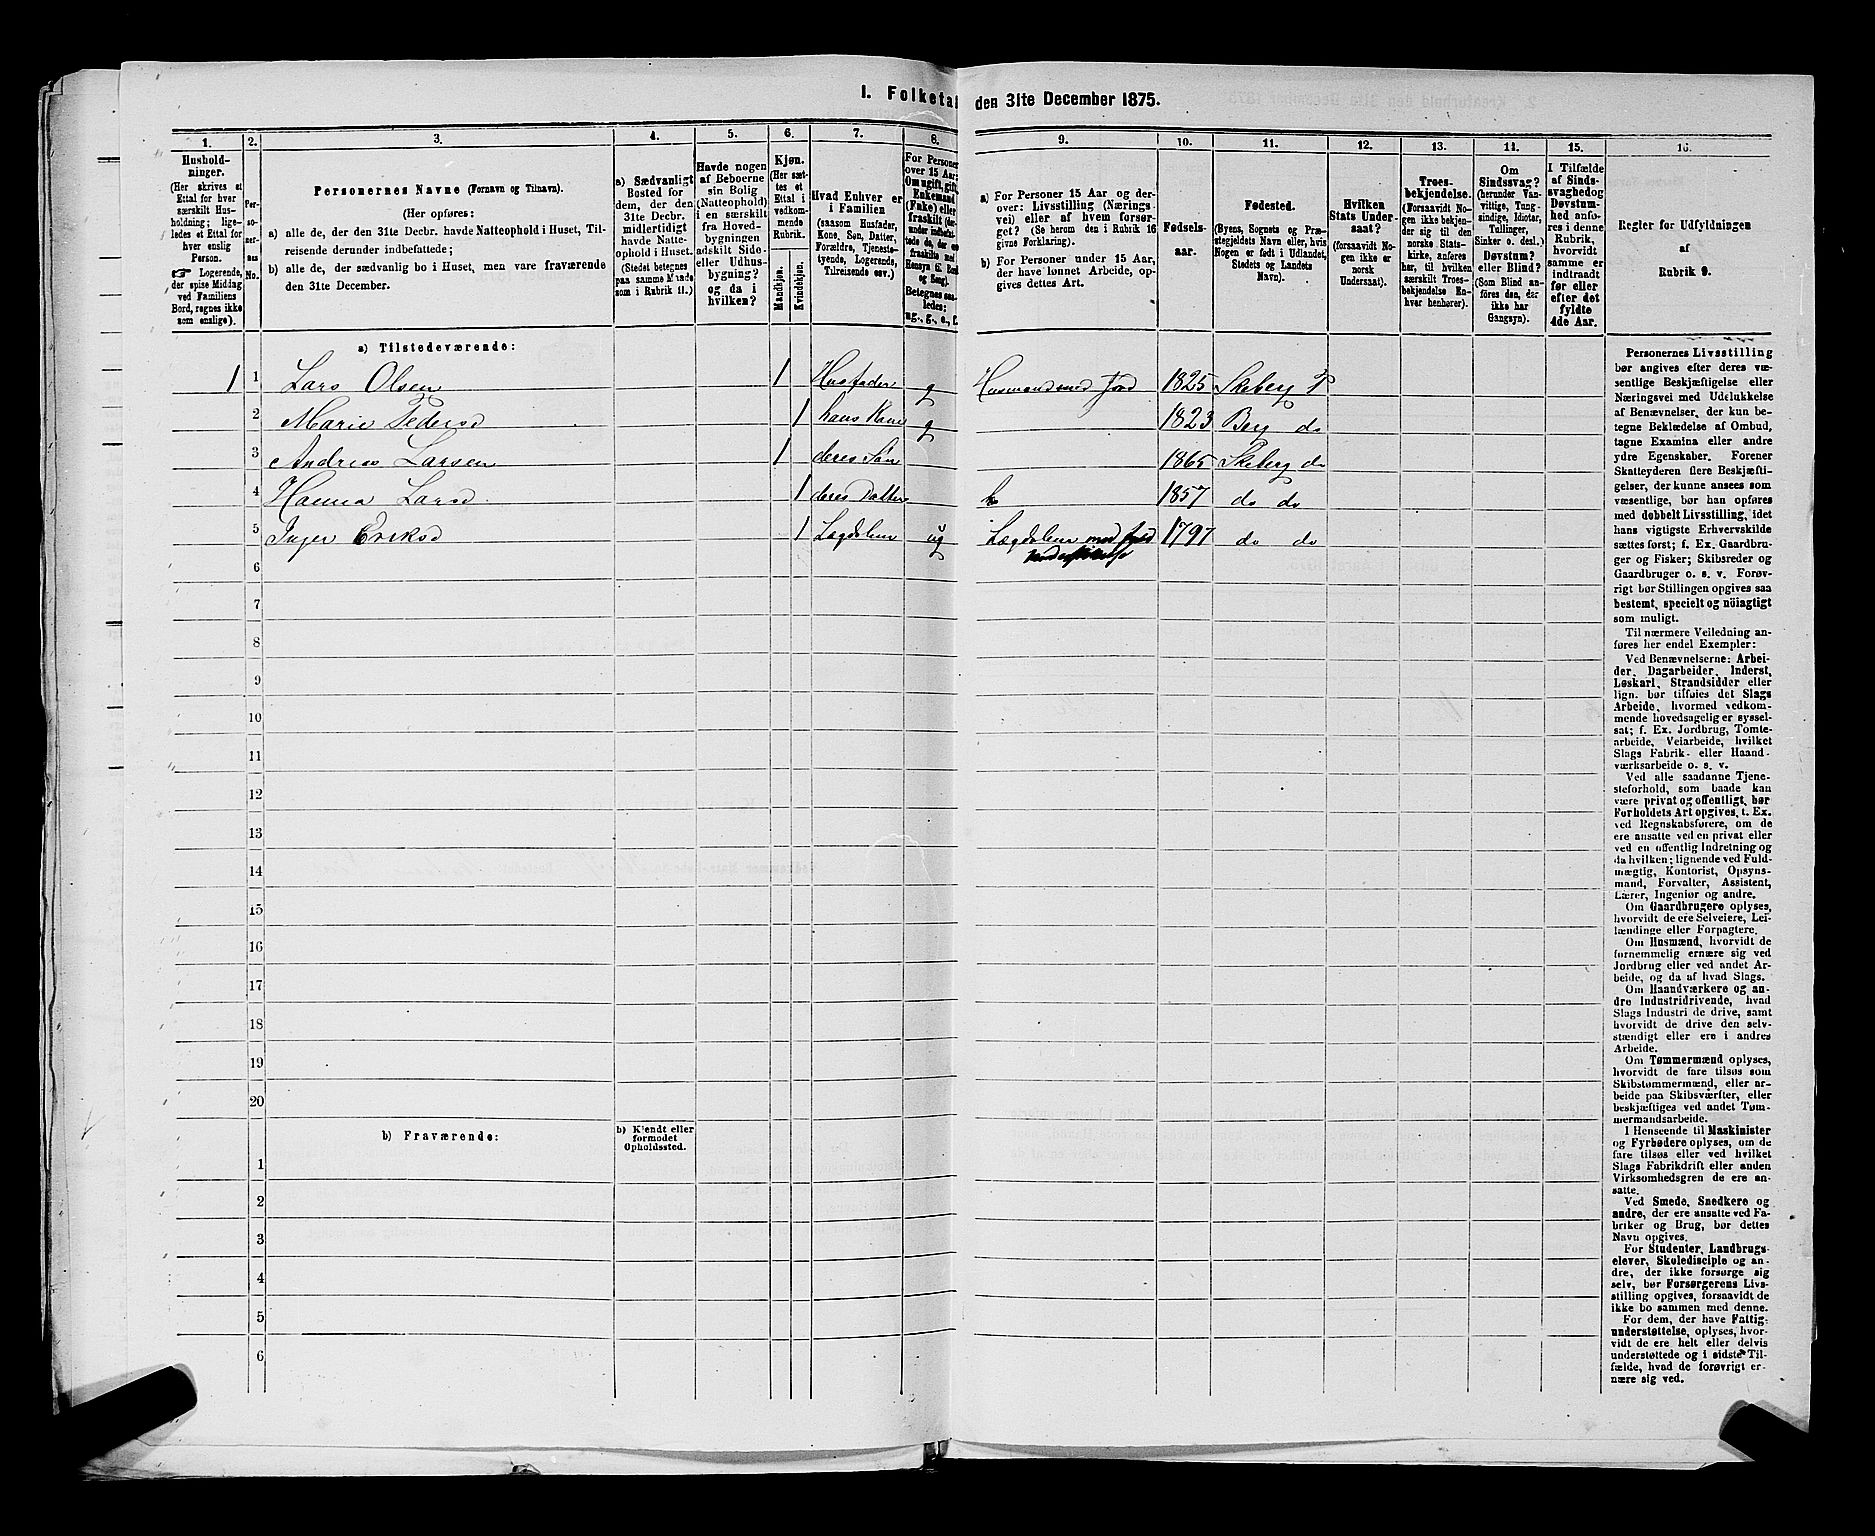 I. Folketal
den 31te December 1875.
1.
Hushold-
ninger.
(Her skrives et
Ettal for hver
særskilt Hus-
holdning; lige-
ledes et Ettal for
hver enslig
Person.
☞ Logerende,
der spise Middag
ved Familiens
Bord, regnes ikke
som enslige).
2.
Per-
so-
ner-
nes
No.
3.
Personernes Navne (Fornavn og Tilnavn).
(Her opføres:
a) alle de, der den 31te Decbr. havde Natteophold i Huset, Til-
reisende derunder indbefattede;
b) alle de, der sædvanlig bo i Huset, men vare fraværende
den 31te December.
4.
a) Sædvanligt
Bosted for
dem, der den
31te Decbr.
midlertidigt
havde Natte-
ophold i Huset.
(Stedet betegnes
paa samme Maade
som i Rubrik 11.)
5.
Havde nogen
af Beboerne
sin Bolig
(Natteophold)
i en særskilt
fra Hoved-
bygningen
adskilt Side-
eller Udhus-
bygning?
og da i
hvilken?
6.
Kjøn.
(Her sæt-
tes et
Ettal i
vedkom-
mende
Rubrik.
Mandkjøn.
Kvindekjøn.
7.
Hvad Enhver er
i Familien
(saasom Husfader,
Kone, Søn, Datter,
Forældre, Tjeneste-
tyende, Logerende,
Tilreisende osv.)
8.
For Personer
over 15 Aar:
Om ugift, gift,
Enkemand
(Enke) eller
fraskilt
Betegnes saa-
ledes:
ug., g., e., f.
9.
a) For Personer 15 Aar og der-
over: Livsstilling (Nærings-
vei) eller af hvem forsør-
get? (Se herom den i Rubrik 16
givne Forklaring).
b) For Personer under 15 Aar,
der have lønnet Arbeide, op-
gives dettes Art.
10.
Fødsels-
aar.
11.
Fødested.
(Byens, Sognets og Præ-
stegjeldets Navn eller, hvis
Nogen er født i Udlandet,
Stedets og Landets
Navn).
12.
Hvilken
Stats Under-
saat?
(forsaavidt No-
gen ikke er
norsk
Undersaat).
13.
Troes-
bekjendelse.
(Forsaavidt No-
gen ikke bekjen-
der sig til den
norske Stats-
kirke, anføres
her, til hvilken
særskilt Troes-
bekjendelse En-
hver henhører).
14.
Om
Sindssvag?
(herunder Van-
vittige, Tung-
sindige, Idioter,
Tullinger,
Sinker o. desl.)
Døvstum?
eller Blind?
(Som Blind an-
føres den, der
ikke har
Gangsyn).
15.
I Tilfælde
af Sinds-
svaghed og
Døvstum-
hed anfø-
res i denne
Rubrik,
hvorvidt
samme er
indtraadt
før eller
efter det
fyldte
4de Aar.
16.
Regler for Udfyldningen
af
Rubrik 9.
a) Tilstedeværende:
1 1 Lars Olsen 1 Husfader g Husmand med Jord 1825 Skeberg P
2 Marie Pedersd 1 hans Kone g 1823 Berg do
3 Andreas Larsen 1 deres Søn 1865 Skeberg do
4 Hanna Larsd. 1 deres Datter 1857 do do
5 Inger Eriksd 1 Lægdslem ug Lægdslem 1797 do do
6
7
8
9
10
11
12
13
14
15
16
17
18
19
20
b) Fraværende:
b) Kjendt eller
formodet
Opholdssted.
1
2
3
4
5
6
Personernes Livsstilling
bør angives efter deres væ-
sentlige Beskjæftigelse eller
Næringsvei med Udelukkelse
af Benævnelser, der kun be-
tegne Beklædelse af Ombud,
tagne Examina eller andre
ydre Egenskaber. Forener
Skatteyderen flere Beskjæfti-
gelser, der kunne ansees som
væsentlige, bør han opføres
med dobbelt Livsstilling, idet
hans vigtigste Erhvervskilde
sættes først; f. Ex. Gaardbru-
ger og Fisker; Skibsreder og
Gaardbruger o. s. v. Forøv-
rigt bør Stillingen opgives saa
bestemt, specielt og nöiagtigt
som muligt.
Til nærmere Veiledning an-
føres her endel Exempler:
Ved Benævnelserne: Arbei-
der, Dagarbeider, Inderst,
Løskarl, Strandsidder eller
lign. bør tilføies det Slags
Arbeide, hvormed vedkom-
mende hovedsagelig er syssel-
sat; f. Ex. Jordbrug, Tomte-
arbeide, Veiarbeide, hvilket
Slags Fabrik- eller Haand-
værksarbeide o. s. v.
Ved alle saadanne Tjene-
steforhold, som baade kan
være privat og offentligt, bør
Forholdets Art opgives, t. Ex.
ved Regnskabsførere, om de
ere ansatte ved en privat eller
ved en offentlig Indretning og
da hvilken; lignende ved Fuld-
mægtig, Kontorist, Opsyns-
mand, Forvalter, Assistent,
Lærer, Ingeniør og andre.
Om Gaardbrugere oplyses,
hvorvidt de ere Selveiere, Lei-
lændinge eller Forpagtere.
Om Husmænd, hvorvidt de
fornemmelig ernære sig ved
Jordbrug eller ved andet Ar-
beide, og da af hvad Slags.
Om Haandværkere og an-
dre Industridrivende, hvad
Slags Industri de drive, samt
hvorvidt de drive den selv-
stændigt eller ere i andres
Arbeide.
Om Tømmermænd oplyses,
hvorvidt de fare tilsøs som
Skibstømmermænd, eller ar-
beide paa Skibsværfter, eller
beskjæftiges ved andet Tøm-
mermandsarbeide.
I Henseende til Maskinister
og Fyrbødere oplyses, om de
fare tilsøs eller ved hvilket
Slags Fabrikdrift eller anden
Virksomhedsgren de ere an-
satte.
Ved Smede, Snedkere og
andre, der ere ansatte ved Fa-
briker og Brug, bør dettes
Navn opgives.
For Studenter, Landbrugs-
elever, Skoledisciple og an-
dre, der ikke forsørge sig
selv, bør Forsørgerens Livs-
stilling opgives, forsaavidt de
ikke bo sammen med denne.
For dem, der have Fattig-
understøttelse, oplyses, hvor-
vidt de ere helt eller delvis
understøttede og i sidste Til-
fælde, hvad de forøvrigt er-
nære sig ved.